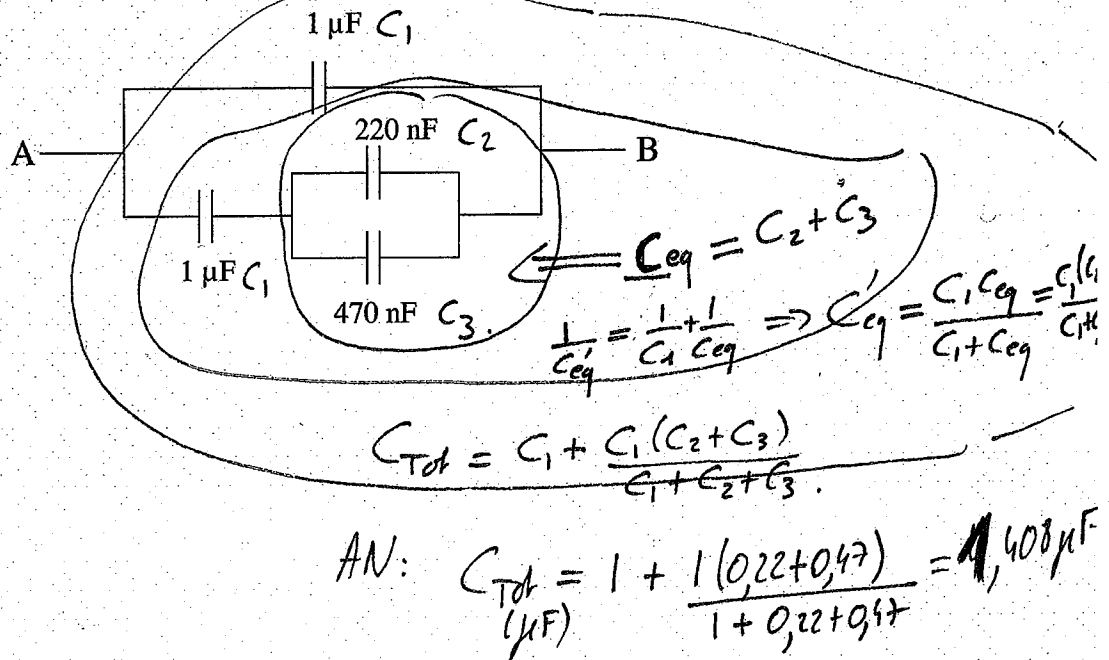 1 µF C₁
A
220 nF C₂
B
1 µF C₁
470 nF C₃.
⇐ Ceq = C₂ + C₃
1/C'eq = 1/C₁ + 1/Ceq ⇒ C'eq = C₁ Ceq / C₁ + Ceq =
C_Tot = C₁ + C₁ (C₂ + C₃) / C₁ + C₂ + C₃.
AN: C_Tot (µF) = 1 + 1 (0,22 + 0,47) / 1 + 0,22 + 0,47 = 1,408 µF